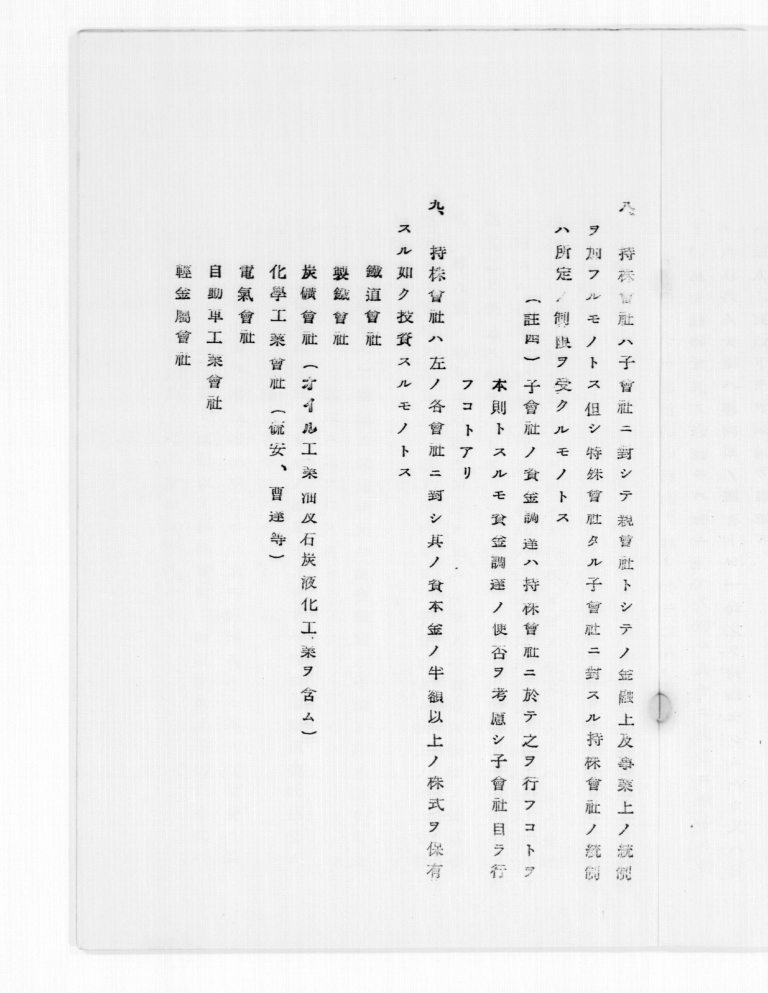 八、持株會社ハ子會社ニ對シテ親會社トシテノ金融上及事業上ノ統制
ヲ加フルモノトス但シ特殊會社タル子會社ニ對スル持株會社ノ統制
ハ所定ノ制限ヲ受クルモノトス
(註四)子會社ノ資金調達ハ持株會社ニ於テ之ヲ行フコトヲ
本則トスルモ資金調達ノ便否ヲ考慮シ子會社自ラ行
フコトアリ
九、持株會社ハ左ノ各會社ニ對シ其ノ資本金ノ半額以上ノ株式ヲ保有
スル如ク投資スルモノトス
鐵道會社
製鐵會社
炭礦會社(オイル工業油及石炭液化工業ヲ含ム)
化學工業會社(硫安、曹達等)
電氣會社
自動車工業會社
輕金屬會社